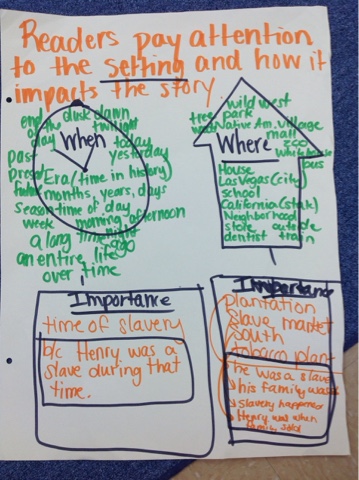 Readers pay attention
to the setting and how it
impacts the story.
When
end of the day
dusk dawn
twilight
today
yesterday
Past
Present
future
Era (time in history)
months, years, days
Season time of day
week morning afternoon
a long time ago
night
an entire life
over time
Where
wild west
park
tree
Native Am. village
mall
zoo
White house
bus
House
Las Vegas (city)
school
California (state)
Neighborhood
store outside
dentist train
Importance
time of slavery
b/c Henry was a
slave during that
time.
Importance
plantation
slave market
South
tobacco plant
he was a slave
his family was
slavery happened
Henry was when
family sold